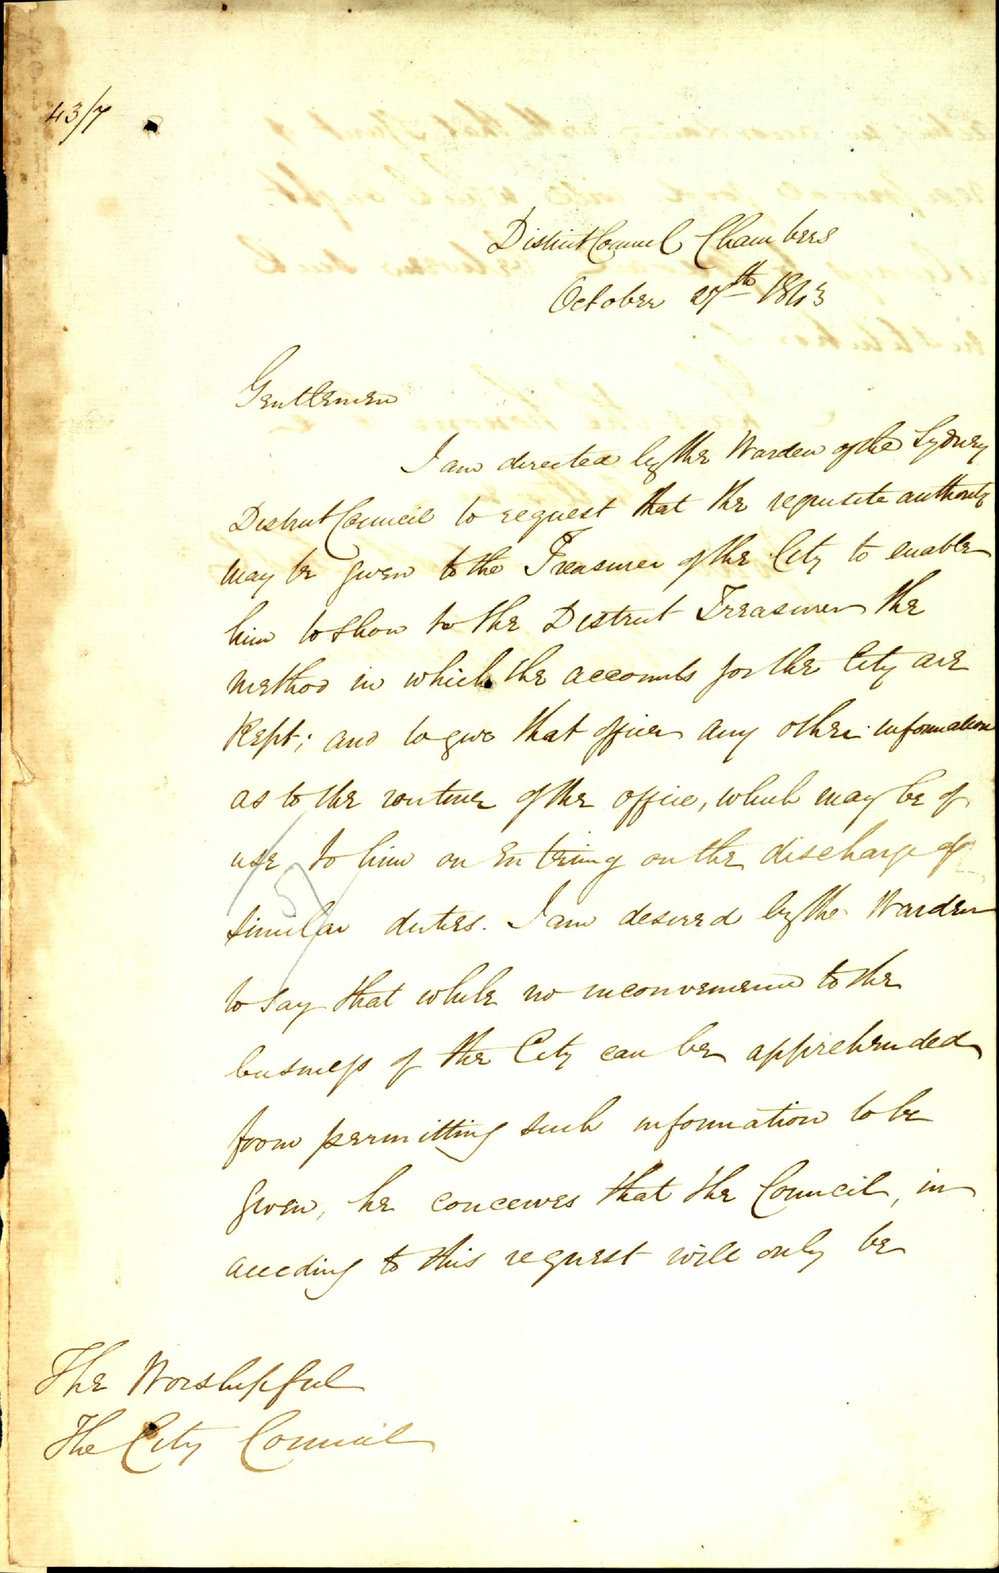 43/7
District Council Chambers
October 27th 1843
Gentlemen
I am directed by the Warden of the Sydney
District Council to request that the requisite authority
may be given to the Treasurer of the City to enable
him to show to the District Treasurer the
method in which the accounts for the City are
Kept; and to give that officer any other information
as to the routine of the office, which may be of
use to him on entering on the discharge of
similar duties. I am desired by the Warden
to say that while no inconvenience to the
business of the City can be apprehended
from permitting such information to be
given, he conceives that the Council, in
acceding to this request will only be
The Worshipful
The City Council